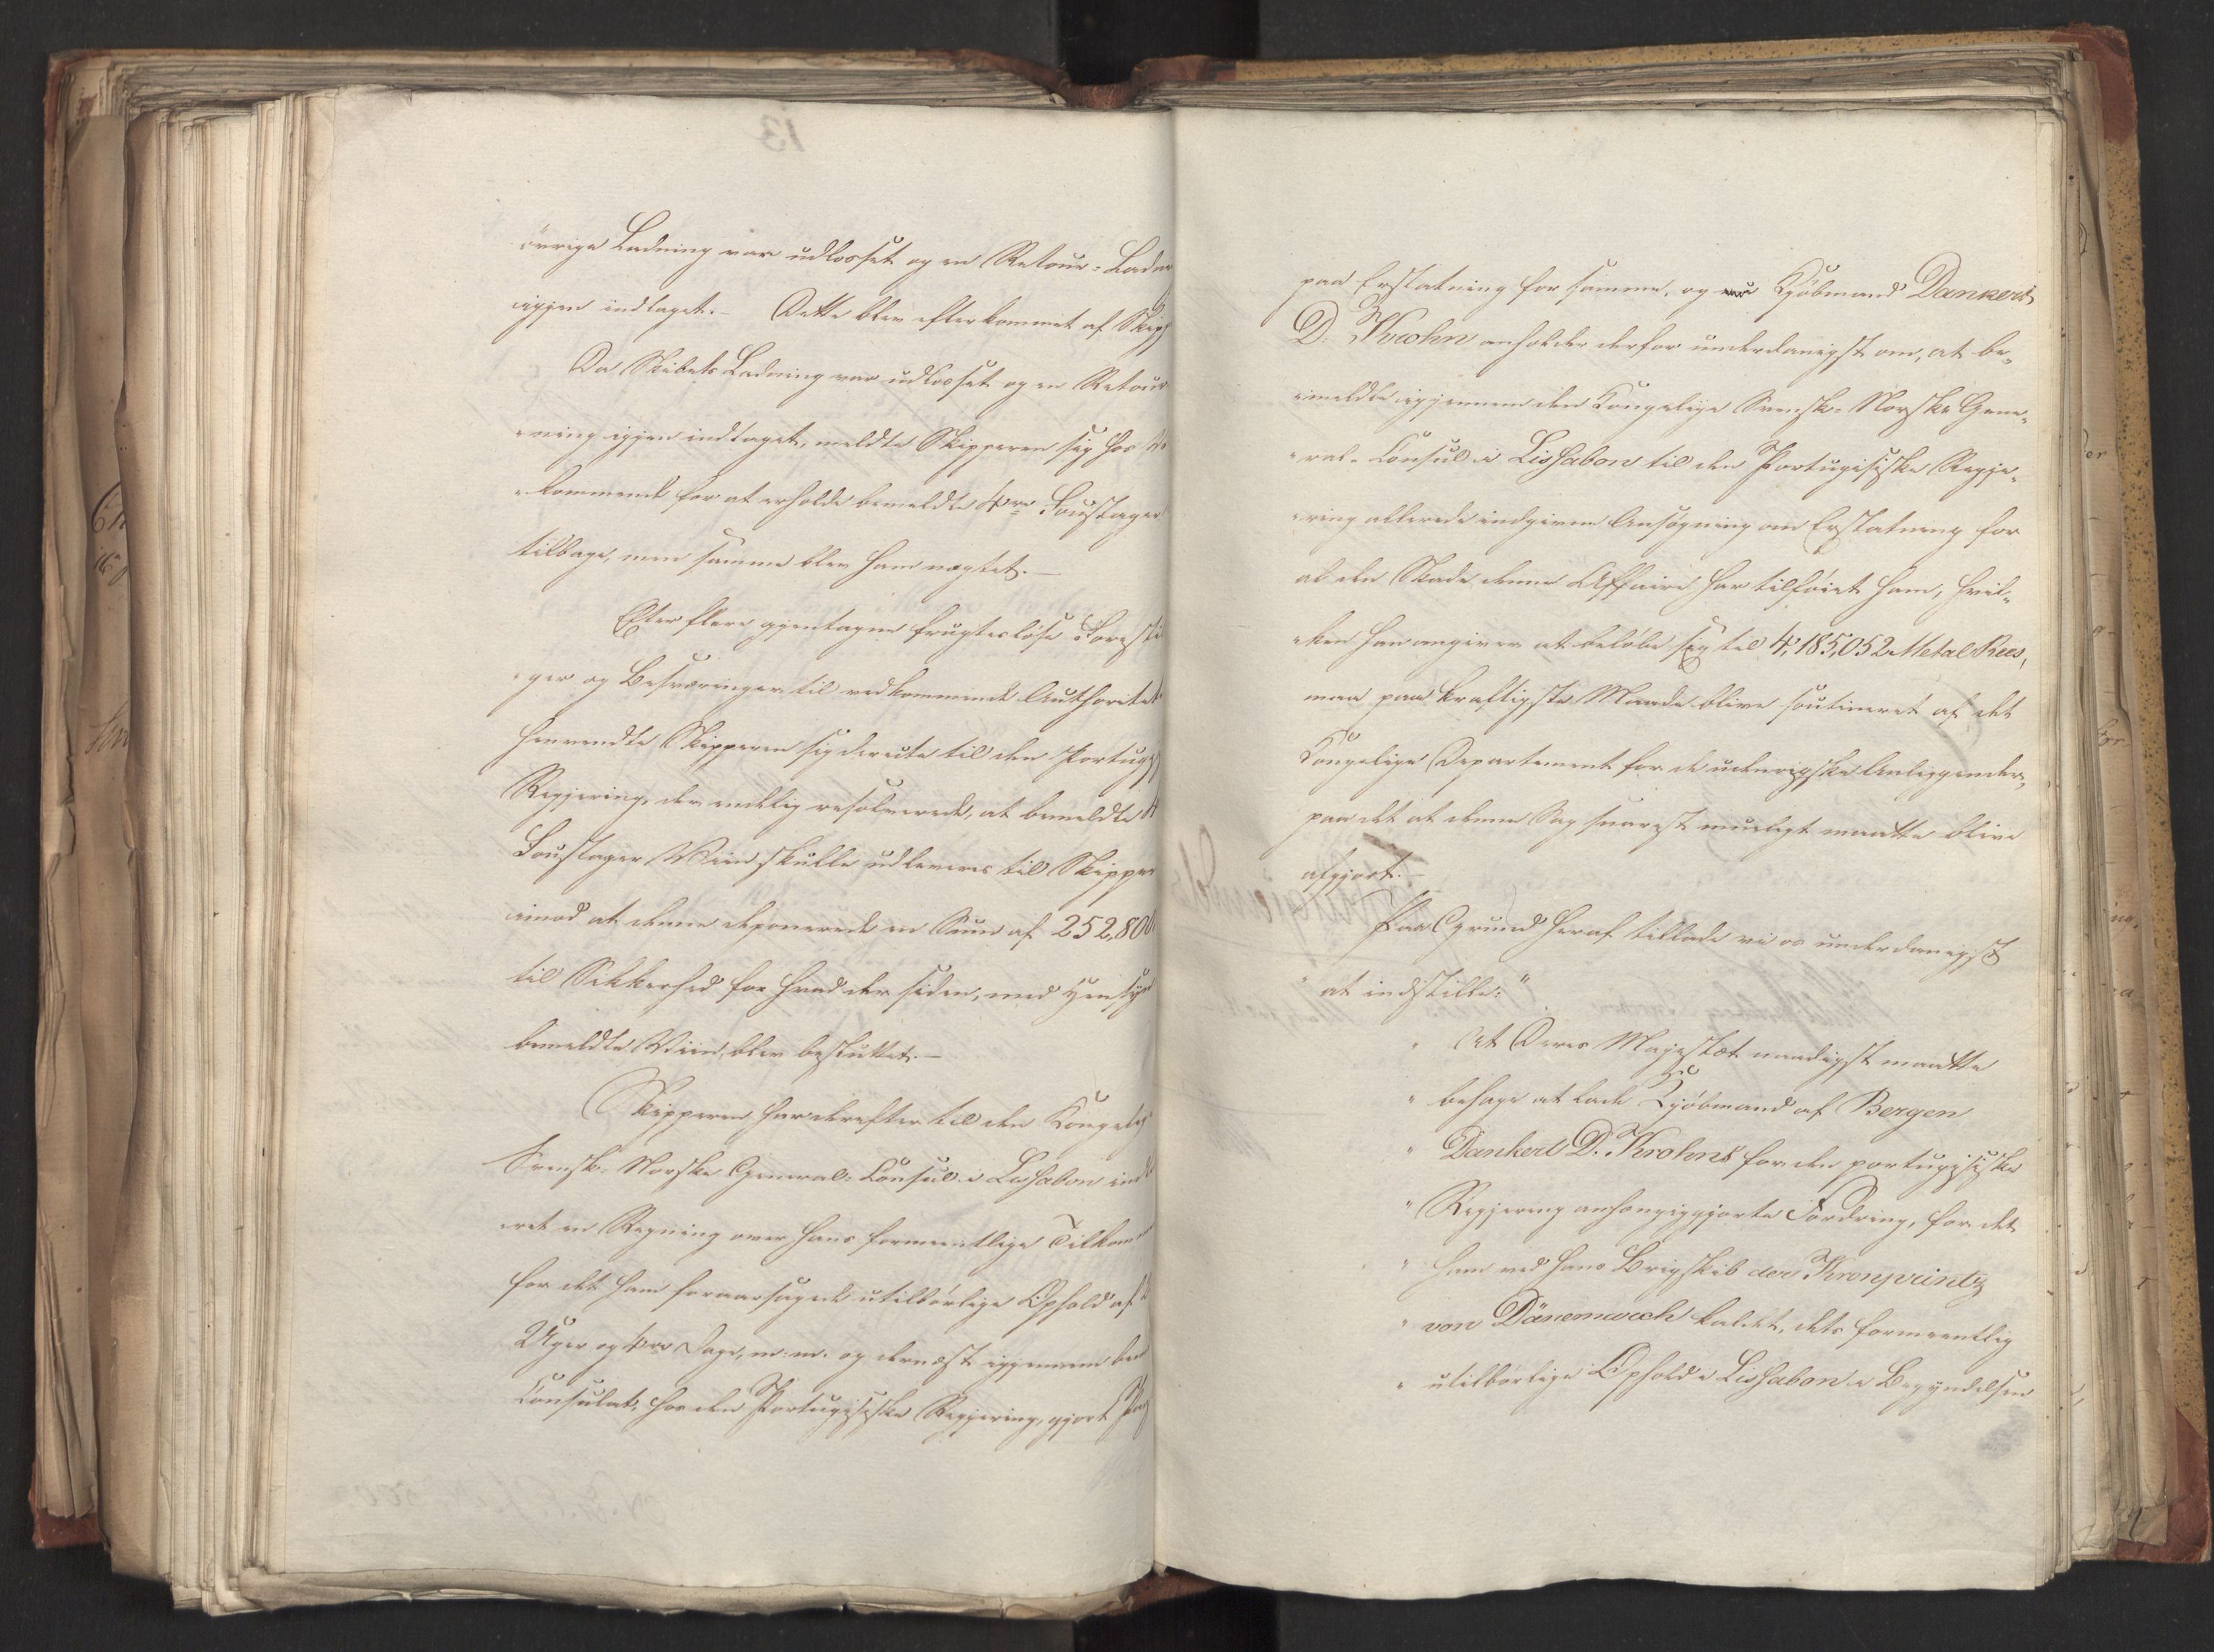 øvrige Ladning var udlosset og en Retour-Ladn
igjen indtaget.- Dette blev efterkommet af Skip
Da Skibets Ladning var udlosset og en Retour
-ning igjen indtaget, meldte Skipperen sig hos
-kommende for at erholde bemeldte 4re Foustager
tilbage, men samme blev ham nægtet.-
Efter flere gjentagne frugtesløse Forestil
-ger og Besværinger til vedkommende Authoritet
henvendte Skipperen sig derecte til den Portugis
Regjering, der endelig resolverede, at bemeldte 4
Foustager Viin skulle udleveres til Skipper
imod at denne deponerede en Sum af 252,800
til Sikkerhed for hvad der siden, med Hensyn
bemeldte Viin, blev besluttet.-
Skipperen har derefter til den Kongelig
Svensk-Norske General-Consul i Lissabon ind
-eret en Regning over hans formeentlige Tilkom
for det ham foraarsagede utilbørlige Ophold af
Uger og 4re Dage, m: m. og dernæst igjennem bem
Consulat, hos den Portugisiske Regjering, gjort Paa
paa Erstatning for samme, og Kjøbmand Dankert
D: Krohn anholder derfor underdanigst om, at be-
-meldte igjennem den Kongelige Svensk-Norske Gene-
-ral-Consul i Lissabon til den Portugisiske Regje-
-ring allerede indgivne Ansøgning om Erstatning for
al den Skade denne Affaire har tilføiet ham, hvil-
-ken han angiver at beløbe sig til 4,185,052 Metal Rees,
maa paa kraftigste Maade blive soutineret af det
Kongelige Departement for de udenrigske Anliggender,
paa det at denne Sag snarest mueligt maatte blive
afgjort.-
Paa Grund heraf tillade vi os underdanigst
" at indstille:"
" At Deres Majestæt naadigst maatte
" behage at lade Kjøbmand af Bergen
" Dankert D. Krohns for den portugisiske
" Regjering anhængiggjorte Fordring, for det
" ham ved hans Brigskib der Kronprintz
" von Dänemarch kaldet, dets formeentlig
" utilbørlige Ophold i Lissabon i Begyndelsen